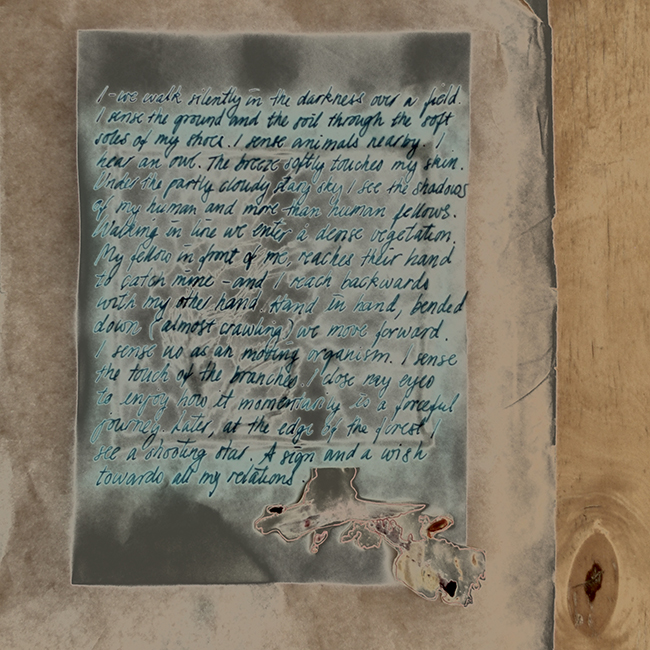 I - we walk silently in the darkness over a field.
I sense the ground and the soil through the soft
soles of my shoes. I sense animals nearby. I
hear an owl. The breeze softly touches my skin.
Under the partly cloudy stary sky I see the shadows
of my human and more than human fellows.
Walking in line we enter a dense vegetation.
My fellow in front of me, reaches their hand
to catch mine - and I reach backwards
with my other hand. Hand in hand, bended
down (almost crawling) we move forward.
I sense us as an moving organism. I sense
the touch of the branches. I close my eyes
to enjoy how it momentarily is a forceful
journey. Later, at the edge of the forest I
see a shooting star. A sign and a wish
towards all my relations.